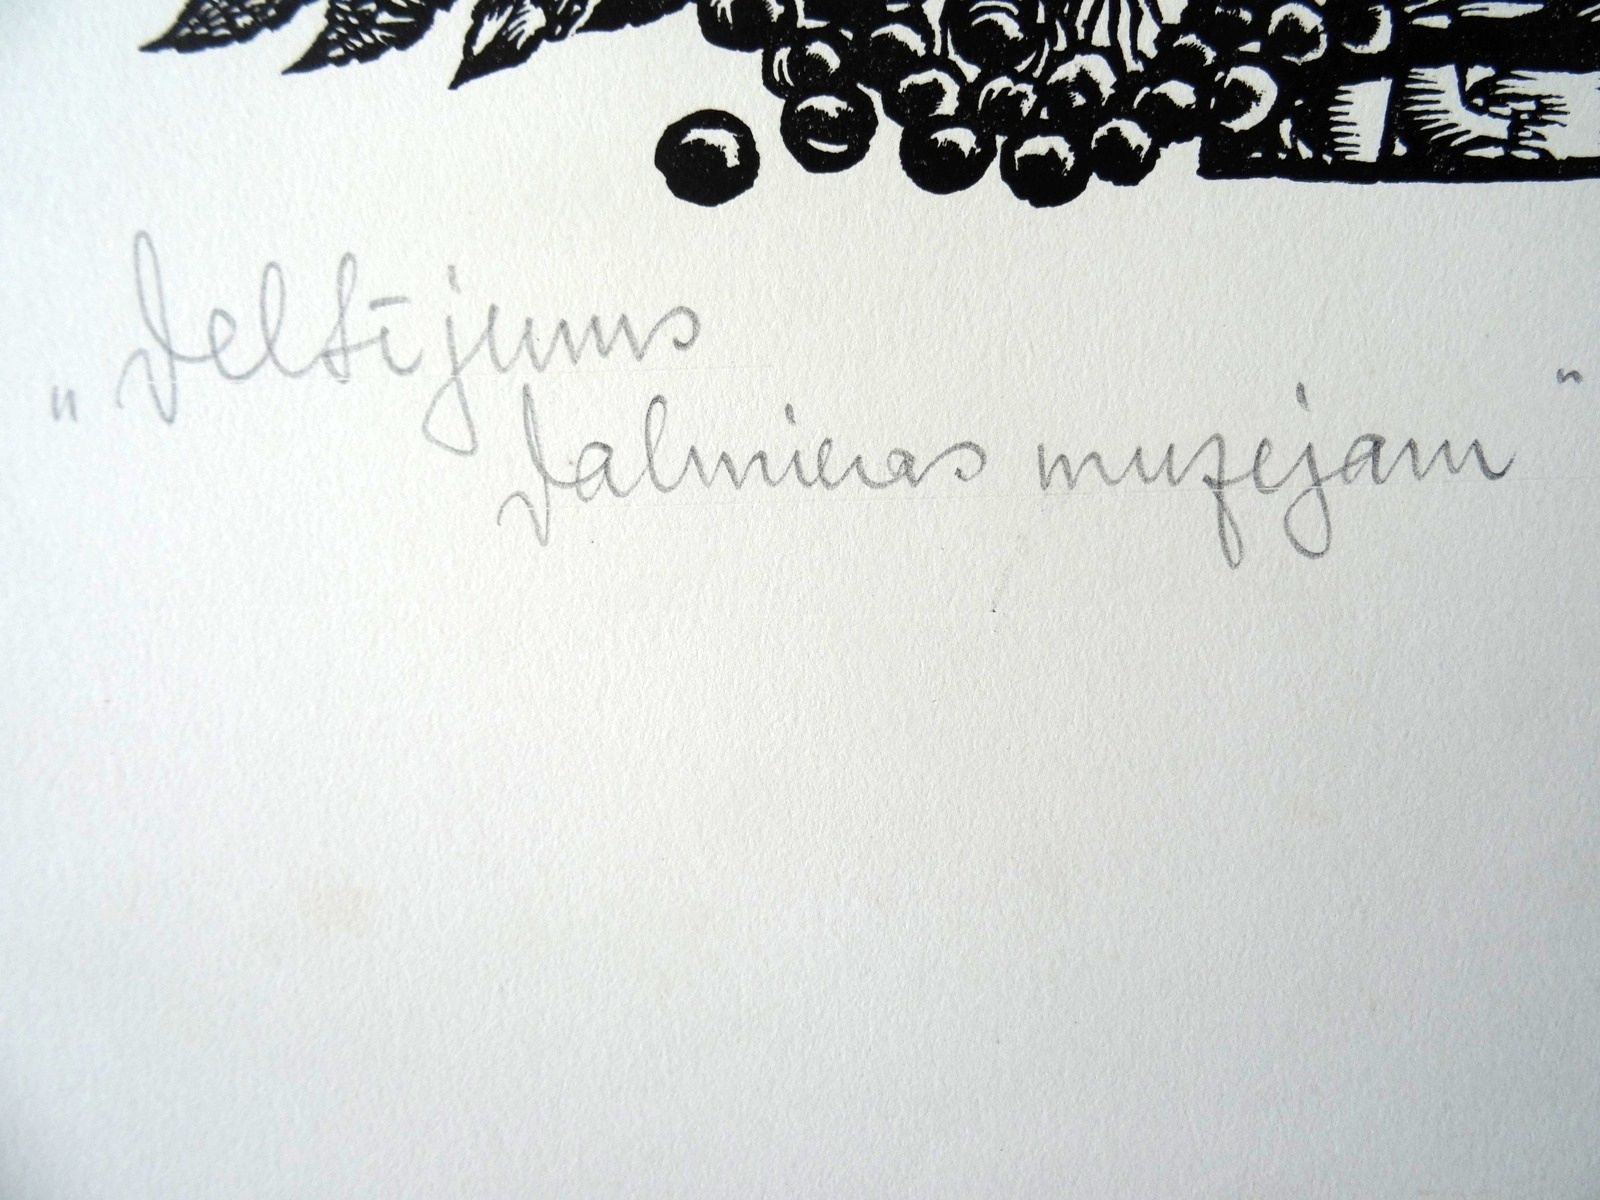 "Veltījums
Valmieras muzejam"